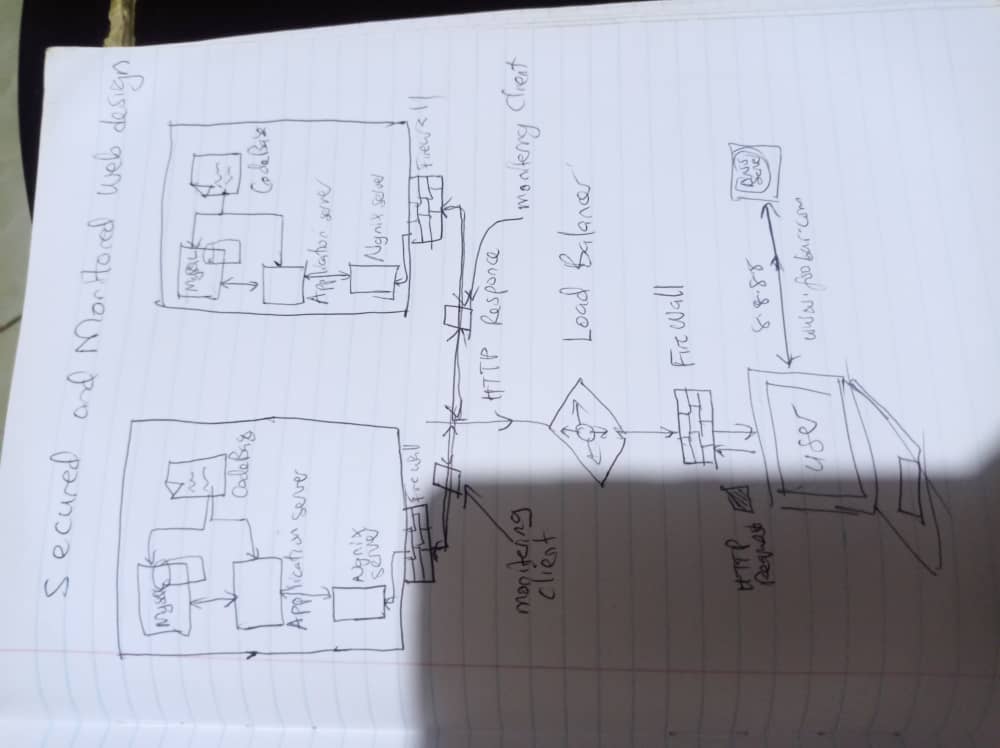 Secured and Monitored Web design
Mysql
CodeBase
Application server
Ngnix
server
Firewall
Mysql
CodeBase
Application server
Ngnix server
Firewall
monitering
Client
HTTP Responce
monitering Client
Load Balancer
FireWall
HTTP
Request
user
8.8.88
www.foobar.com
DNS
Server